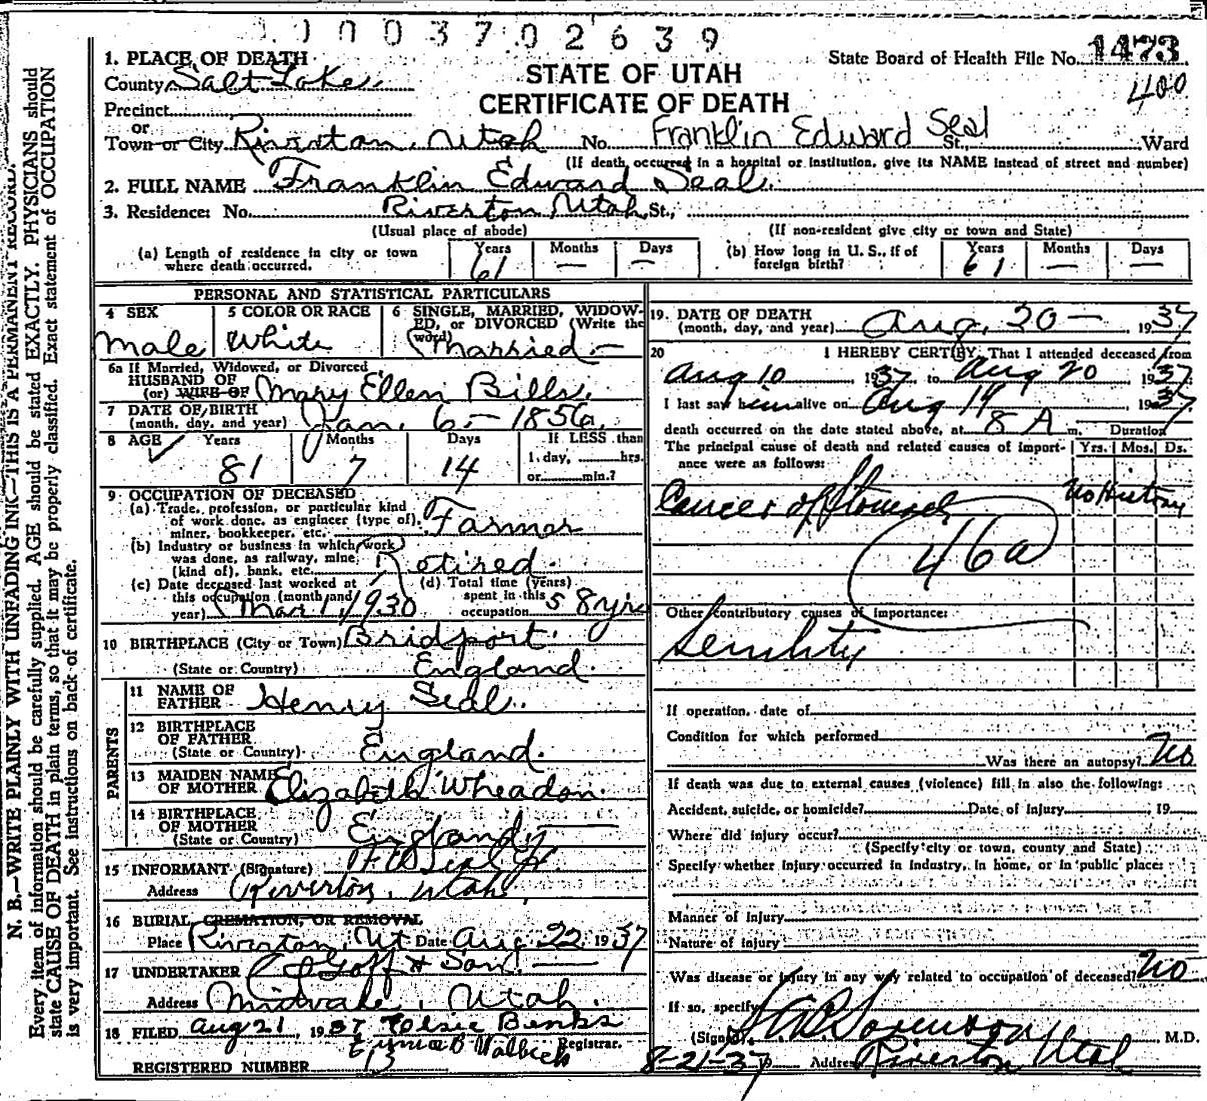 1 0 0 3 7 0 2 6 3 9
1. PLACE OF DEATH
State Board of Health File No. 1473
400
STATE OF UTAH
CERTIFICATE OF DEATH
County Salt Lake
Precinct
or
Town or City Riverton, Utah No. Franklin Edward Seal St., Ward
(If death occurred in a hospital or institution, give its NAME instead of street and number)
2. FULL NAME Franklin Edward Seal.
3. Residence: No. Riverton Utah St.,
(Usual place of abode) (If non-resident give city or town and State)
(a) Length of residence in city or town where death occurred. Years 61 Months — Days —
(b) How long in U. S., if of foreign birth? Years 61 Months — Days —
PERSONAL AND STATISTICAL PARTICULARS
4 SEX Male
5 COLOR OR RACE White
6 SINGLE, MARRIED, WIDOWED, or DIVORCED (Write the word) Married.—
6a If Married, Widowed, or Divorced
HUSBAND OF
(or) WIFE OF Mary Ellen Bills.
7 DATE OF BIRTH
(month, day, and year) Jan. 6.— 1856.
8 AGE Years 81 Months 7 Days 14 If LESS than 1 day, hrs. or min.?
9 OCCUPATION OF DECEASED
(a) Trade, profession, or particular kind
of work done, as engineer (type of),
miner, bookkeeper, etc. Farmer
(b) Industry or business in which work
was done, as railway, mine,
(kind of), bank, etc. Retired.
(c) Date deceased last worked at
this occupation (month and
year) Mar 1, 1930
(d) Total time (years)
spent in this
occupation 58 yrs
10 BIRTHPLACE (City or Town) Bridport.
(State or Country) England.
PARENTS
11 NAME OF FATHER Henry Seal.
12 BIRTHPLACE OF FATHER
(State or Country) England.
13 MAIDEN NAME OF MOTHER Elizabeth Wheadon.
14 BIRTHPLACE OF MOTHER
(State or Country) England
15 INFORMANT (Signature) F E Seal Jr.
Address Riverton, Utah
16 BURIAL, CREMATION, OR REMOVAL
Place Riverton, Ut Date Aug 22 1937
17 UNDERTAKER Goff & Son.
Address Midvale, Utah.
18 FILED Aug 21, 1937 Elsie Benks
Walbeck Registrar.
REGISTERED NUMBER 13
19. DATE OF DEATH
(month, day, and year) Aug. 20— 1937
20 I HEREBY CERTIFY, That I attended deceased from
Aug 10 1937 to Aug 20 1937
I last saw him alive on Aug 19 1937
death occurred on the date stated above, at 8 A m. Duration
The principal cause of death and related causes of importance were as follows: Yrs. Mos. Ds.
Cancer of Stomach No History
46a
Other contributory causes of importance:
Senility
If operation, date of
Condition for which performed
Was there an autopsy? No
If death was due to external causes (violence) fill in also the following:
Accident, suicide, or homicide? Date of injury 19
Where did injury occur?
(Specify city or town, county and State)
Specify whether injury occurred in industry, in home, or in public place:
Manner of injury
Nature of injury
Was disease or injury in any way related to occupation of deceased? No
If so, specify
(Signed) Sorenson M.D.
8-21-37 19 Address Riverton Utah
N. B.—WRITE PLAINLY WITH UNFADING INK—THIS IS A PERMANENT RECORD.
Every item of information should be carefully supplied. AGE should be stated EXACTLY. PHYSICIANS should
state CAUSE OF DEATH in plain terms, so that it may be properly classified. Exact statement of OCCUPATION
is very important. See instructions on back of certificate.